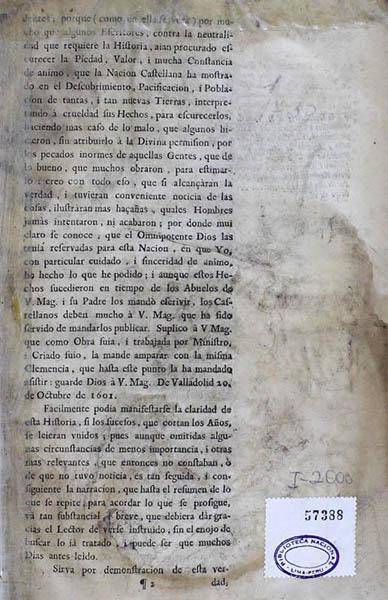 dentes; porque (como en ella se verà) por mu-
cho que algunos Escritores, contra la neutrali-
dad que requiere la Historia, aian procurado es-
curecer la Piedad, Valor, i mucha Constancia
de animo, que la Nacion Castellana ha mostra-
do en el Descubrimiento, Pacificacion, i Pobla-
cion de tantas, i tan nuevas Tierras, interpre-
tando à crueldad sus Hechos, para escurecerlos,
haciendo mas caso de lo malo, que algunos hi-
cieron, sin atribuirlo à la Divina permision, por
los pecados inormes de aquellas Gentes, que de
lo bueno, que muchos obraron, para estimar-
lo: creo con todo eso, que si alcançàran la
verdad, i tuvieran conveniente noticia de las
cosas, ilustràran mas haçañas, quales Hombres
jamàs intentaron, ni acabaron; por donde mui
claro se conoce, que el Omnipotente Dios las
tenia reservadas para esta Nacion, en que Yo,
con particular cuidado, i sinceridad de animo,
ha hecho lo que he podido; i aunque estos He-
chos sucedieron en tiempo de los Abuelos de
V. Mag. i su Padre los mandò escrivir, los Cas-
tellanos deben mucho à V. Mag. que ha sido
servido de mandarlos publicar. Suplico à V Mag.
que como Obra suia, i trabajada por Ministro,
i Criado suio, la mande amparar con la misma
Clemencia, que hasta este punto la ha mandado
asistir: guarde Dios à V. Mag. De Valladolid 20.
de Octubre de 1601.
Facilmente podia manifestarse la claridad de
esta Historia, si los sucesos, que cortan los Años,
se leieran vnidos; pues aunque omitidas algu-
nas circunstancias de menos importancia, i otras
mas relevantes, que entonces no constaban, ò
de que no tuvo noticia, es tan seguida, i con-
siguiente la narracion, que hasta el resumen de lo
que se repite, para acordar lo que se prosigue,
và tan substancial, i breve, que debiera dàr gra-
cias el Lector de verse instruido, sin el enojo de
buscar lo ià tratado, i puede ser que muchos
Dias antes leìdo.
Sirva por demonstracion de esta ver-
¶ 2 dad,
I-2000
57388
BIBLIOTECA NACIONAL
LIMA-PERU